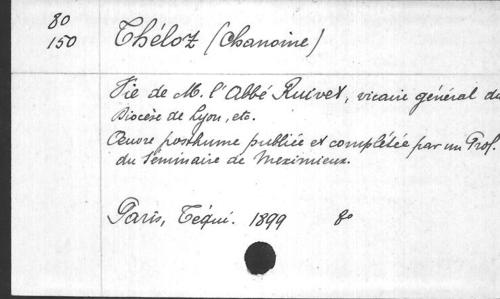 80
150
Théloz (Chanoine)
Vie de M. l'Abbé Ruivet, vicaire général du
Diocèse de Lyon, etc.
Œuvre posthume publiée et complétée par un Prof.
du Séminaire de Meximieux.
Paris, Téqui. 1899 8º